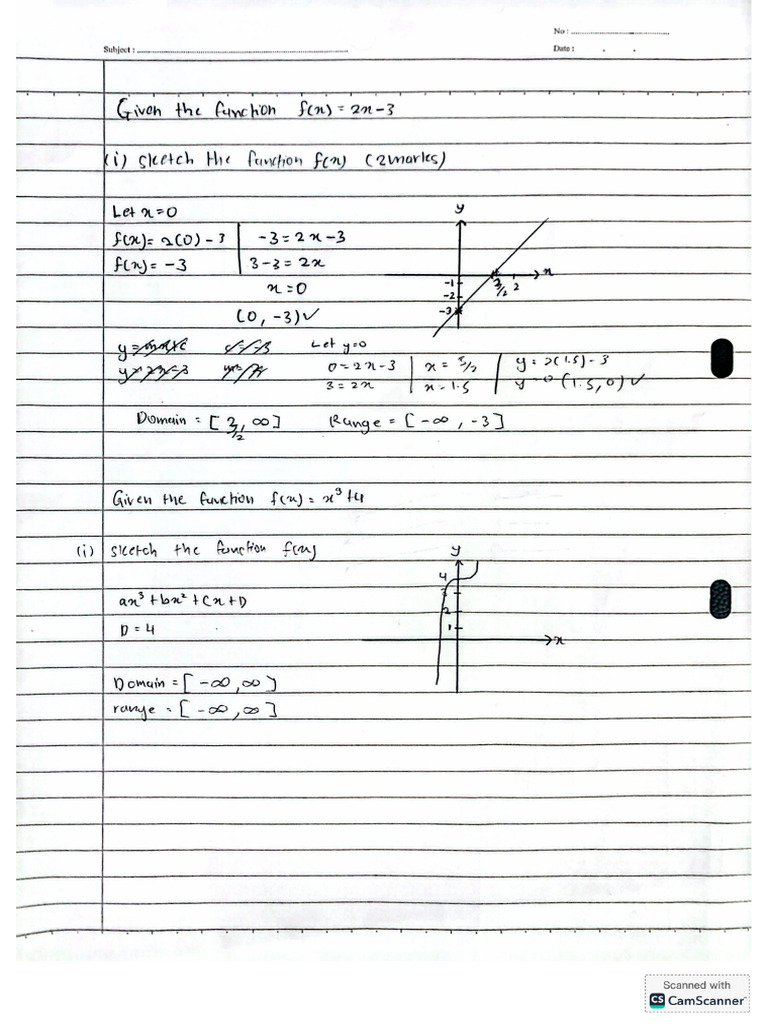 No :
Subject :
Date : . .
Given the function f(x) = 2x-3
(i) sketch the function f(x) (2 marks)
Let x=0
f(x) = 2(0) - 3 | -3 = 2x-3
f(x) = -3 | 3-3 = 2x
x=0
(0, -3)✓
y
x
-1
-2
-3
3/2 2
Let y=0
0 = 2x-3 | x = 3/2 | y = 2(1.5) - 3
3 = 2x | x = 1.5 | y = 0 (1.5, 0)✓
Domain = [3/2, ∞] Range = [-∞, -3]
Given the function f(x) = x³+4
(i) sketch the function f(x)
y
4
3
2
1
x
ax³ + bx² + Cx + D
D = 4
Domain = [-∞, ∞]
range = [-∞, ∞]
Scanned with
CS CamScanner